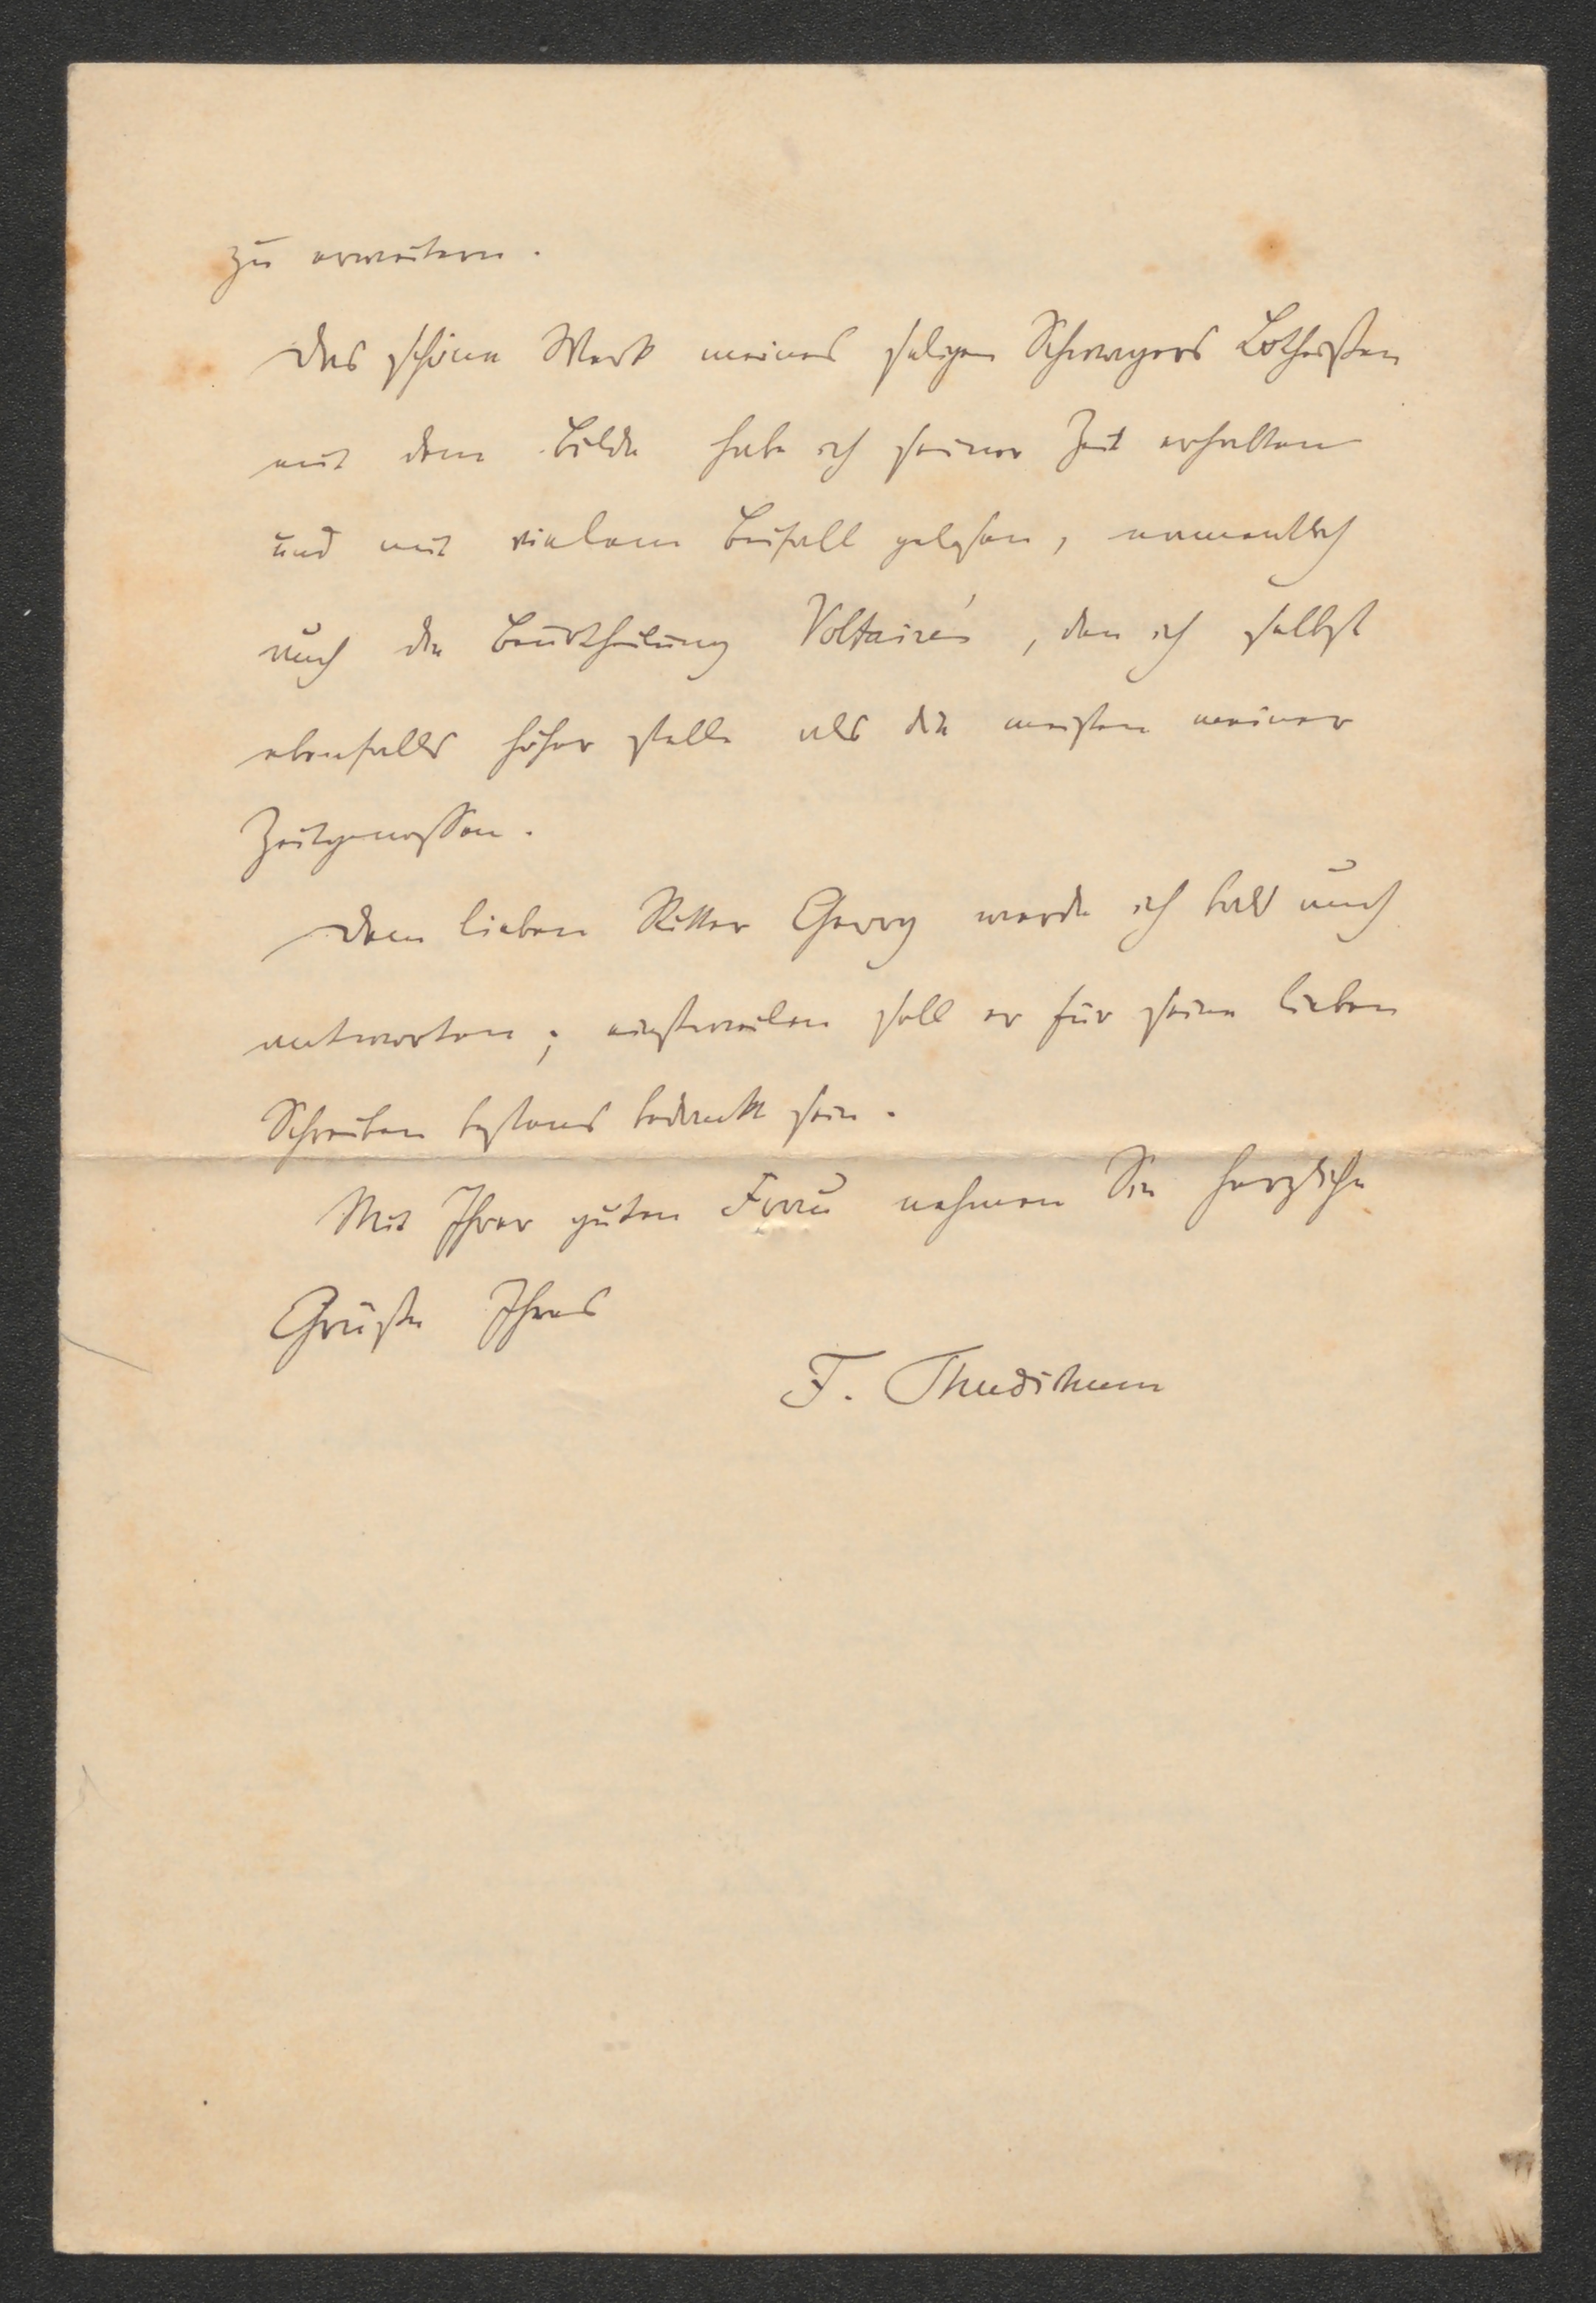 zu erweitern.
Das schöne Werk meines seligen Schwagers Lotheißen
mit dem Bilde habe ich seiner Zeit erhalten
und mit vielem Beifall gelesen, namentlich
auch die Beurtheilung Voltaire's, den ich selbst
ebenfalls höher stelle als die meisten meiner
Zeitgenossen.
Dem lieben Ritter Georg werde ich bald auch
antworten; einstweilen soll er für seine lieben
Schreiben bestens bedankt sein.
Mit Ihrer guten Frau nehmen Sie herzliche
Grüße Ihres
F. Thudichum